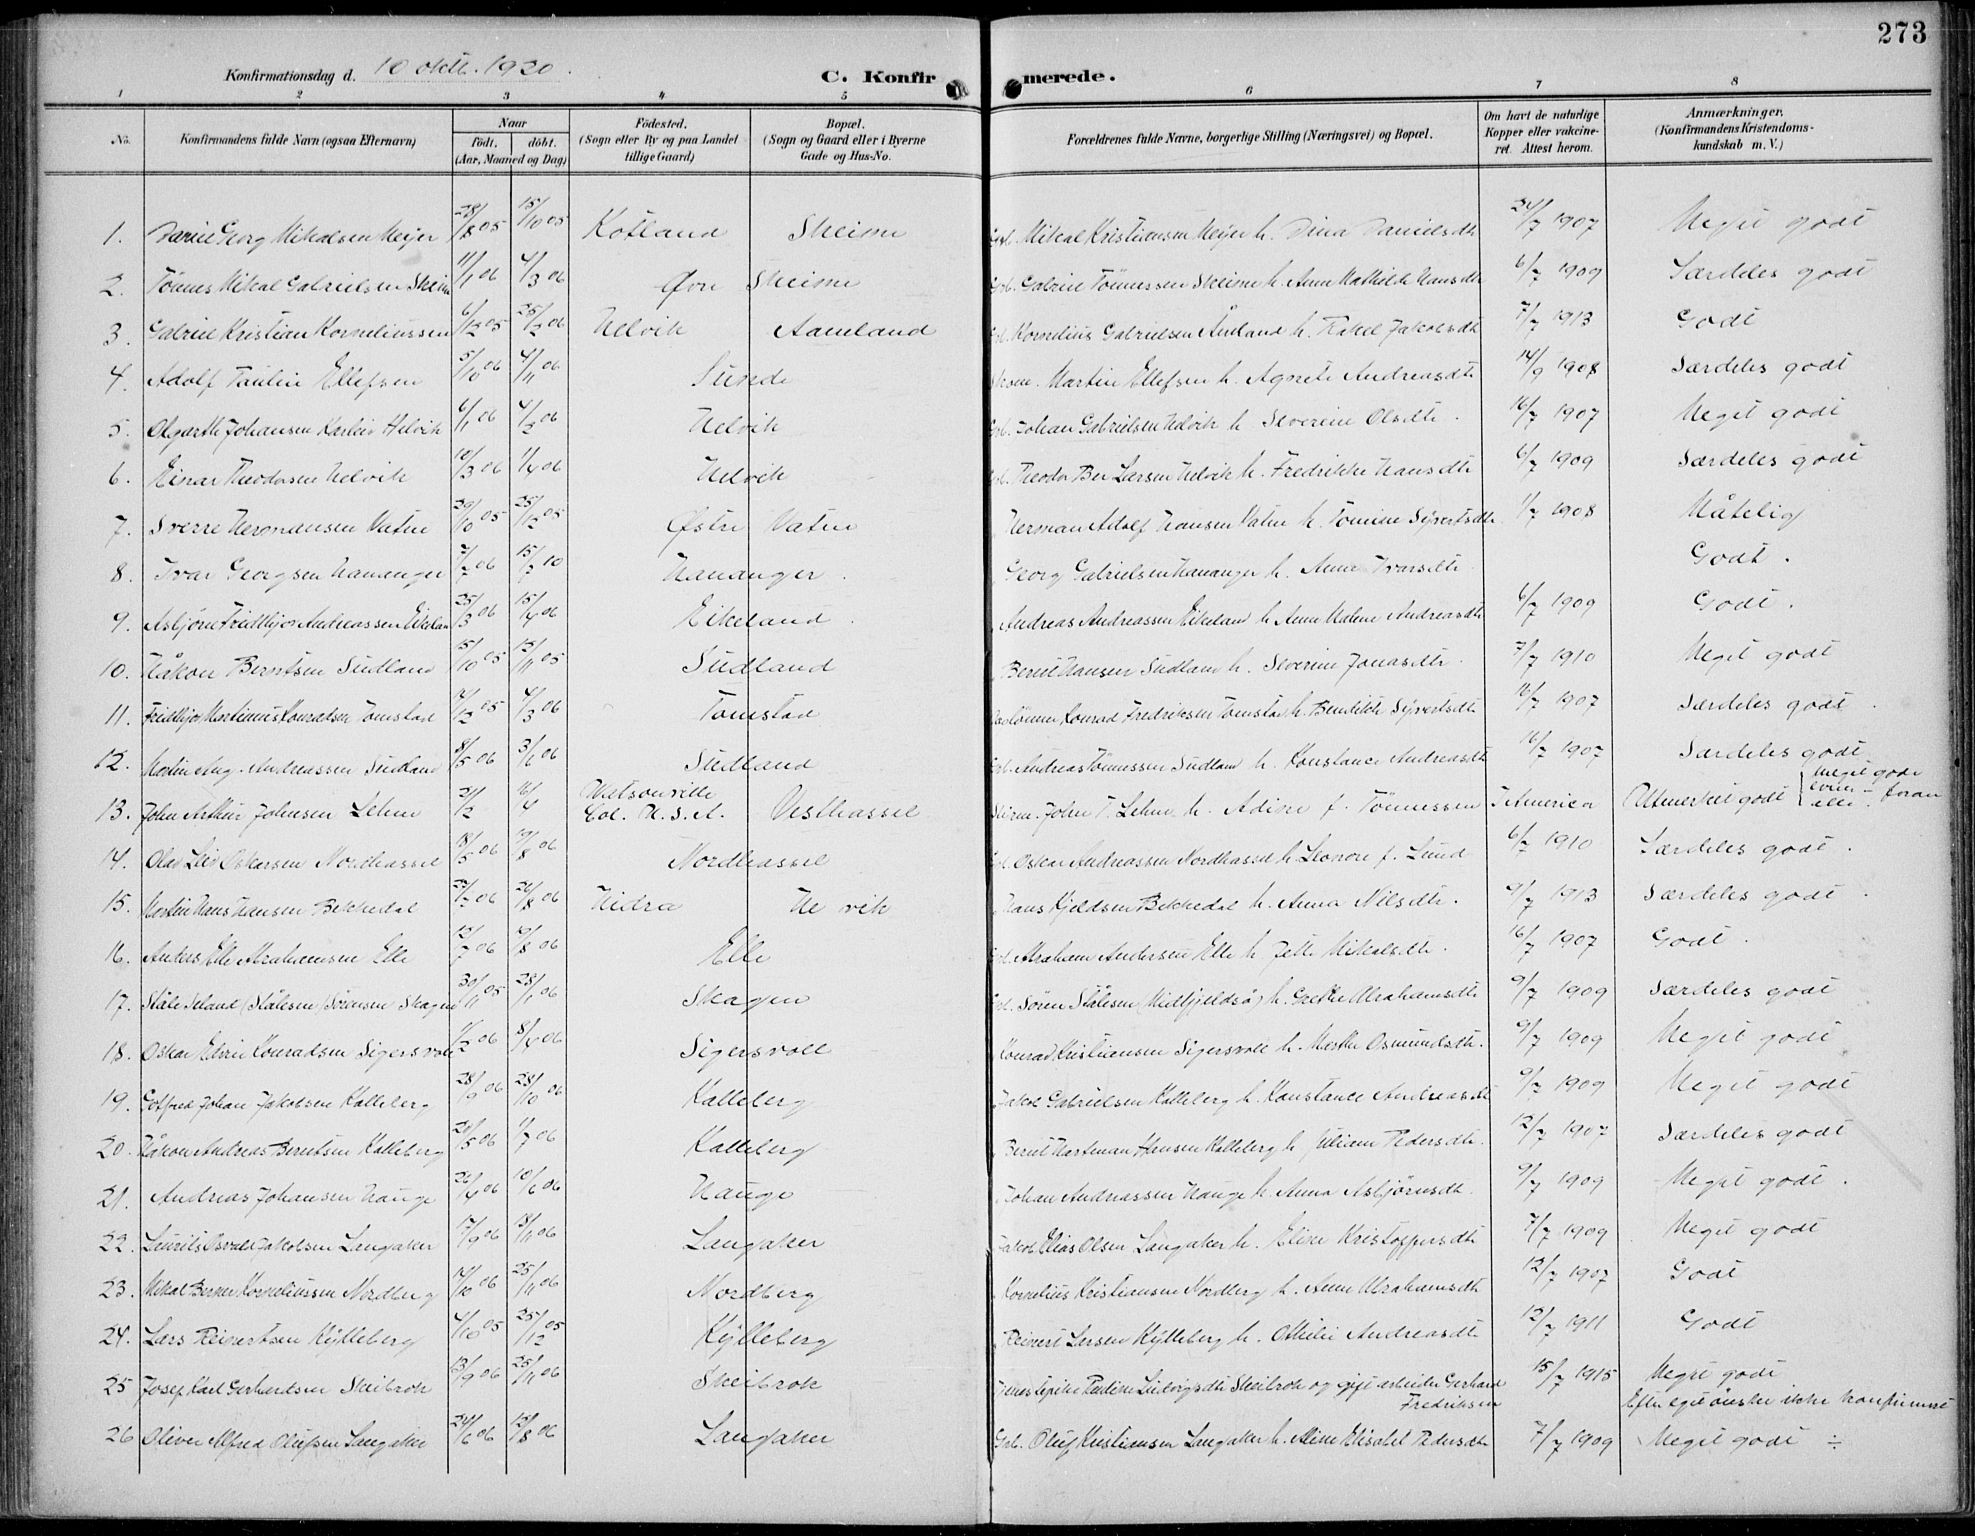 273
Konfirmationsdag d. 10 oktb. 1920.
C. Konfirmerede.
1 2 3 4 5 6 7 8
No. Konfirmandens fulde Navn (ogsaa Efternavn) Naar født. døbt. (Aar, Maaned og Dag) Fødested. (Sogn eller By og paa Landet tillige Gaard) Bopæl. (Sogn og Gaard eller i Byerne Gade og Hus-No. Forældrenes fulde Navne, borgerlige Stilling (Næringsvei) og Bopæl. Om havt de naturlige Kopper eller vakcineret. Attest herom. Anmærkninger. (Konfirmandens Kristendomskundskab m. V.)
1. Georg Mikalsen Meyer 28/8 05 15/10 05 Kotland Skeime Mikal Kristiansen Meyer h. Dina Danielsdtr 24/7 1907 Meget godt
2. Tønnes Mikal Gabrielsen Skeime 11/1 06 4/3 06 Øvre Skeime Gabriel Tønnessen Skeime h. Anne Mathilde Hansdtr 6/7 1909 Særdeles godt
3. Gabriel Kristian Korneliussen 6/12 05 25/2 06 Helvik Aamland Kornelius Gabrielsen Åmland h. Rakel Jakobsdtr 7/7 1913 Godt
4. Adolf Paulin Ellefsen 5/10 06 4/11 06 Sunde Martin Ellefsen h. Agnete Andreasdtr 14/9 1908 Særdeles godt
5. Johansen Helvik 6/1 06 4/2 06 Helvik Johan Gabrielsen Helvik h. Severine Olsdtr. 16/7 1907 Meget godt
6. Einar Theodorsen Helvik 10/3 06 1/4 06 Helvik Theodor Ber Larsen Helvik h. Fredrikke Hansdtr 6/7 1909 Særdeles godt
7. Sverre Hermansen Vatne 29/10 05 25/12 05 Østre Vatne Herman Adolf Hansen Vatne h. Tomine Syvertsdtr. 1/7 1908 Måtelig
8. Ivar Georgsen Hananger 7/7 06 15/7 10 Hananger. Georg Gabrielsen Hananger h. Anna Ivarsdtr. Godt.
9. Asbjørn Fridthjof Andreassen Eikeland 25/3 06 15/4 06 Eikeland. Andreas Andreassen Eikeland h. Anne Malene Andreasdtr 6/7 1909 Godt.
10. Håkon Berntsen Sudland 15/10 05 12/11 05 Sudland Bernt Hansen Sudland h. Severine Jonasdtr. 7/7 1910 Meget godt
11. Fridthjof Martinius Konradsen Tomstad 7/12 05 4/3 06 Tomstad Konrad Fredriksen Tomstad h. Bendikte Syvertsdtr 16/7 1907 Særdeles godt.
12. Martin Aug. Andreassen Sudland 8/5 06 3/6 06 Sudland Andreas Tønnessen Sudland h. Konstance Andreasdtr 16/7 1907 Særdeles godt
13. John Arthur Johnsen Lehne 21/2 16/4 Watsonville Col. U. S. A. Vesthassel John T. Lehne h. Adine f. Tønnessen I America Utmerket godt meget godt foran
14. Olav Leif Oskarsen Nordhassel 18/5 06 19/8 06 Nordhassel Oskar Andreassen Nordhassel h. Leonore f. Lund 6/7 1910 Særdeles godt.
15. Martin Hans Hansen Bekkedal 06 26/8 06 Hidra Helvik Hans Kjeldsen Bekkedal h. Anna Nilsdtr. 9/7 1913 Særdeles godt.
16. Anders Elle Abrahamsen Elle 12/7 06 19/8 06 Elle Abraham Andersen Elle h. Jette Mikalsdtr. 16/7 1907 Godt.
17. Ståle (Stålesen) Sørensen Skagen 30/11 05 28/1 06 Skagen Søren Stålesen (Midfjeldså) h. Grethe Abrahamsdtr 9/7 1909 Særdeles godt
18. Oskar Edvin Konradsen Sigersvoll 1/2 06 8/4 06 Sigersvoll Konrad Kristiansen Sigersvoll h. Marthe Osmundsdtr. 9/7 1909 Meget godt
19. Gotfred Johan Jakobsen Kalleberg 28/9 06 28/10 06 Kalleberg Jakob Gabrielsen Kalleberg h. Konstance Andreasdtr 9/7 1909 Meget godt
20. Håkon Andreas Berntsen Kalleberg 20/5 06 1/7 06 Kalleberg Bernt Hartman Hansen Kalleberg h. Juliane Pedersdtr. 12/7 1907 Særdeles godt
21. Andreas Johansen Hauge 26/4 06 10/6 06 Hauge Johan Andreassen Hauge h. Anna Asbjørnsdtr. 9/7 1909 Meget godt.
22. Laurits Osvald Jakobsen Langaker 17/9 06 18/11 06 Langaker Jakob Elias Olsen Langaker h. Eline Kristoffersdtr 7/7 1909 Meget godt
23. Mikal Berner Korneliussen Nordberg 7/10 06 25/11 06 Nordberg Kornelius Kristiansen Nordberg h. Anne Abrahamsdtr 12/7 1907 Godt
24. Lars Reinertsen Kylleberg 4/10 05 25/12 05 Kylleberg Reinert Larsen Kylleberg h. Othilie Andreasdtr 12/7 1911 Godt
25 Josef Karl Gerhardsen Skeibrok 13/9 06 25/11 06 Skeibrok Ludvigsdtr Skeibrok og gift arbeider Gerhard Fredriksen 15/7 1915 Meget godt
Efter eget ønske ikke konfirmert
26 Oliver Alfred Olufsen Langaker 24/6 06 12/8 06 Langaker Oluf Kristiansen Langaker h. Aline Elisabet Pedersdtr 7/7 1909 Meget godt ÷